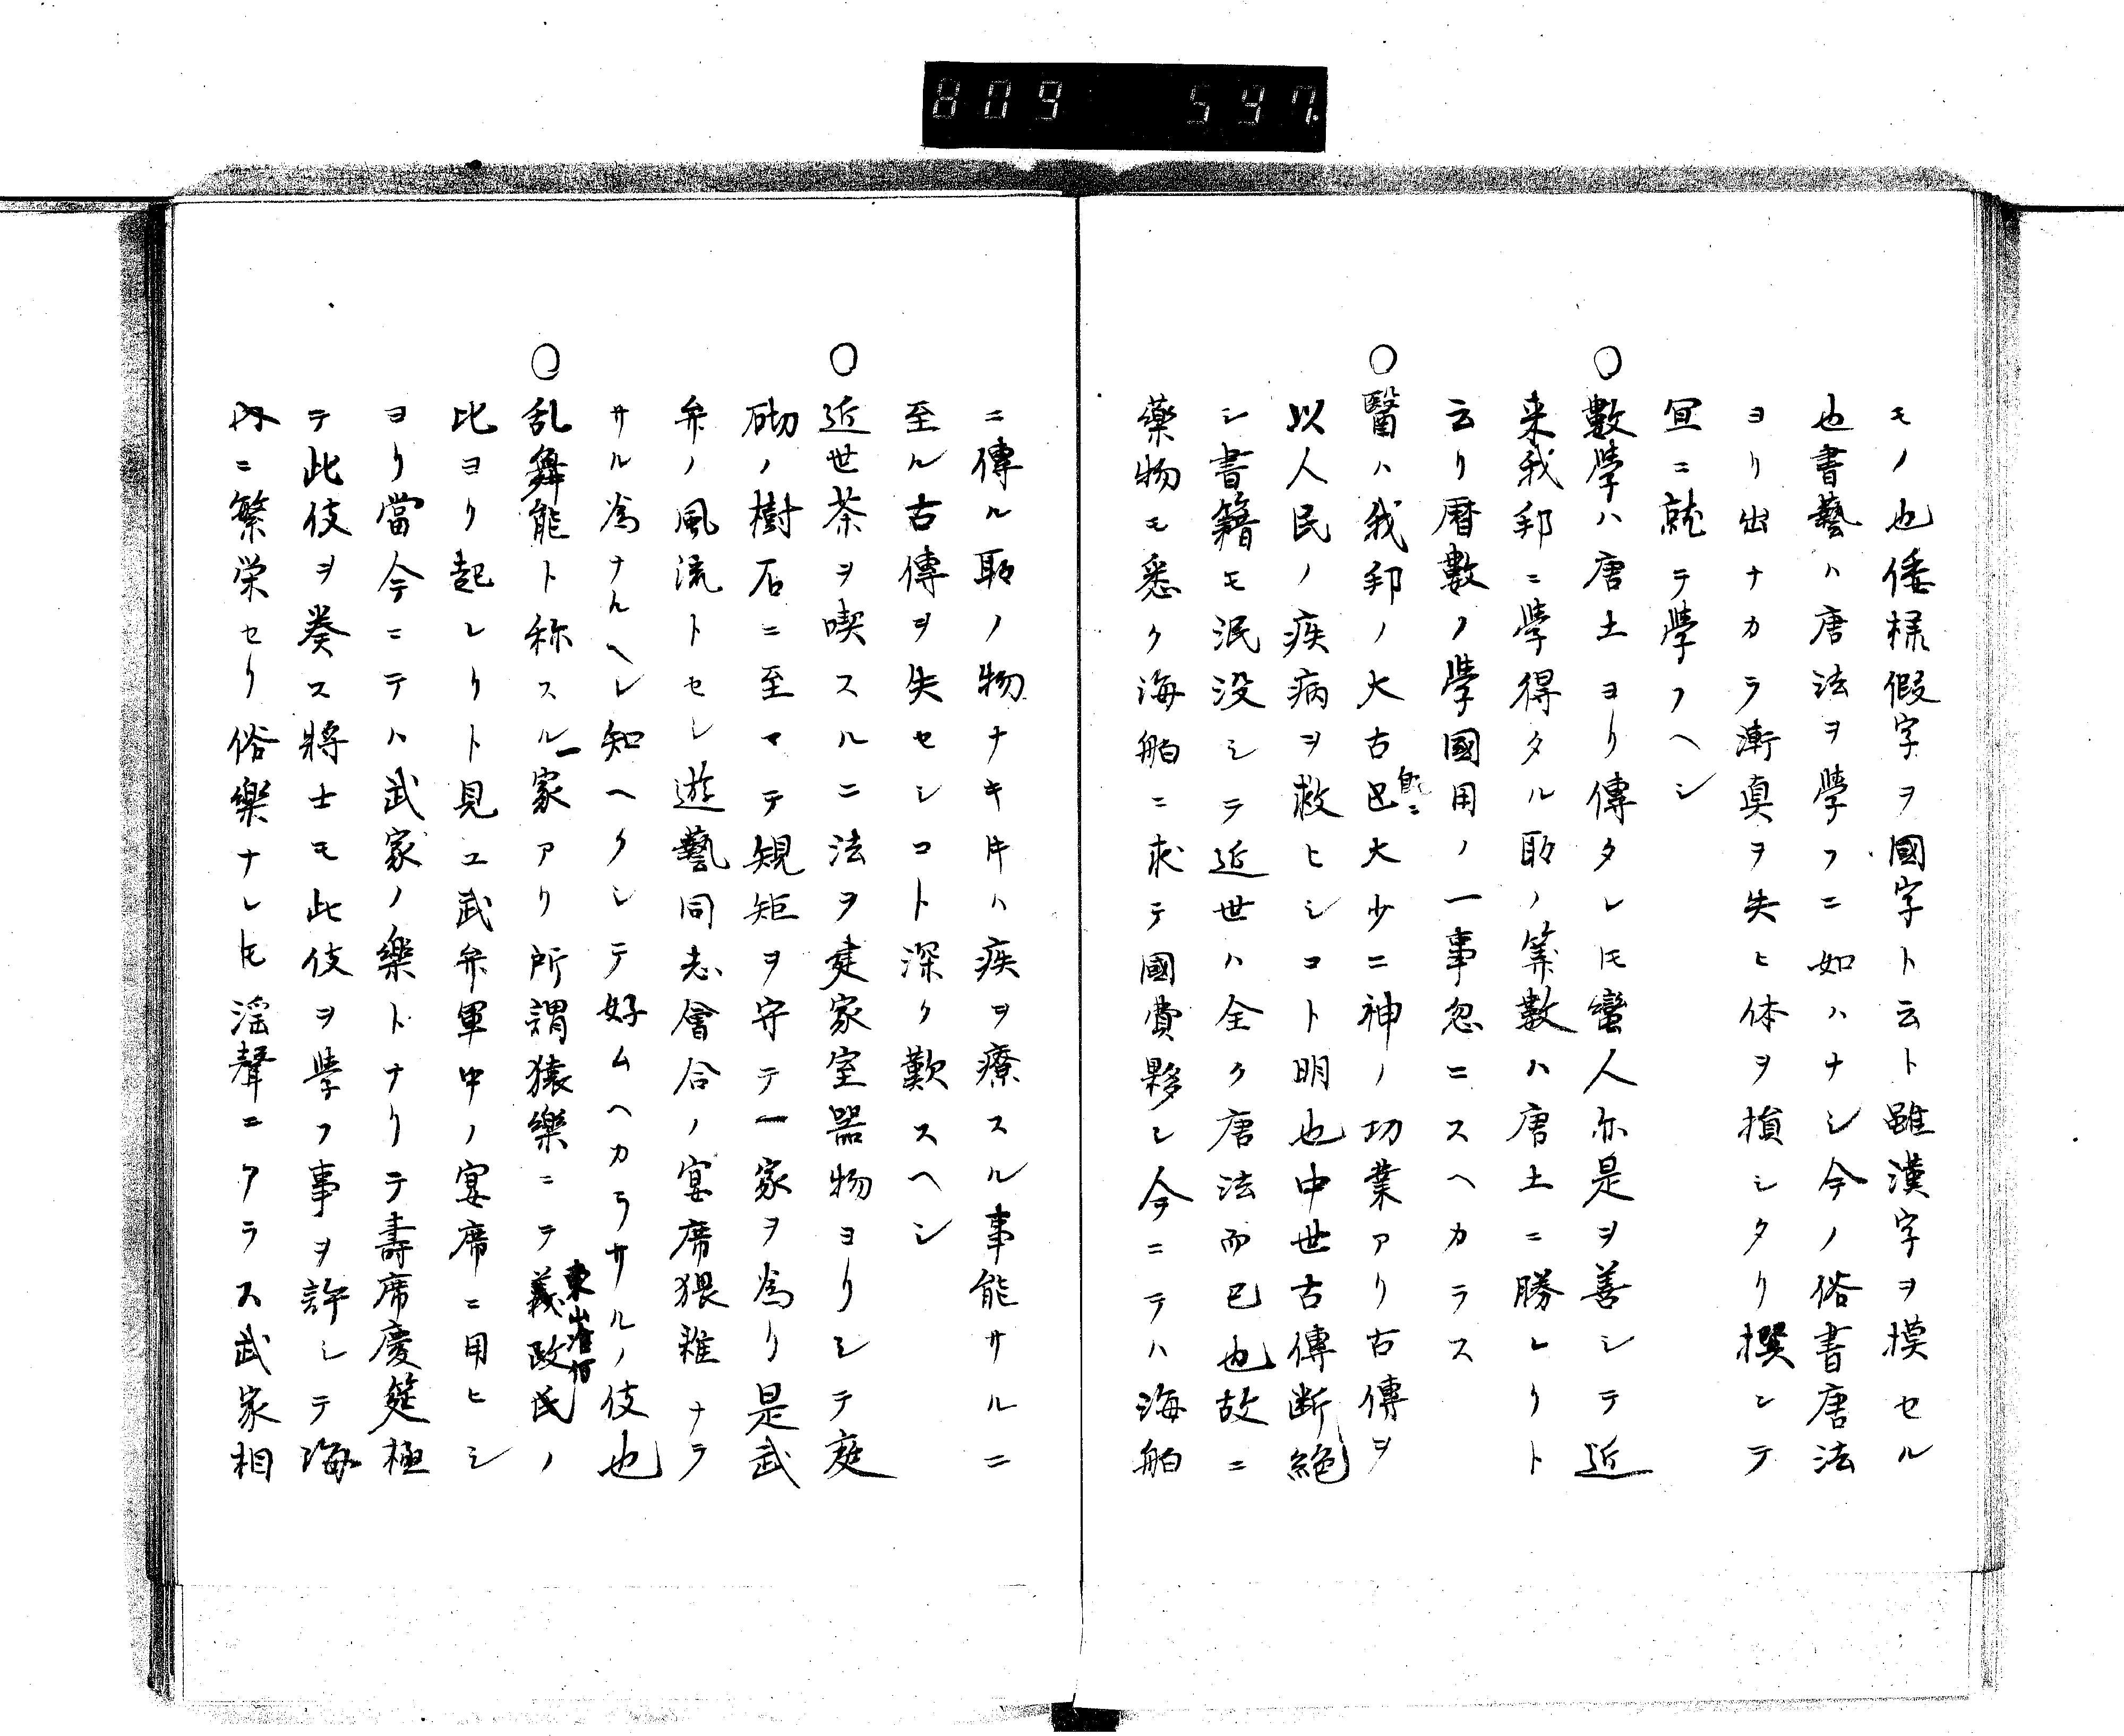 809 597.
モノ也倭様假字ヲ國字ト云ト雖漢字ヲ摸セル
也書藝ハ唐法ヲ學フニ如ハナシ今ノ俗書唐法
ヨリ出ナカラ漸真ヲ失ヒ体ヲ損シタリ撰ンテ
宜ニ就テ學フヘシ
○數學ハ唐土ヨリ傳タレ𪜈蠻人亦是ヲ善シテ近
来我邦ニ學得タル所ノ筭數ハ唐土ニ勝レリト
云リ暦數ノ學國用ノ一事忽ニスヘカラス
○醫ハ我邦ノ大古巴大少ニ神ノ功業アリ古傳ヲ
以人民ノ疾病ヲ救ヒシコト明也中世古傳断絶
シ書籍モ泯没シテ近世ハ全ク唐法而已也故ニ
藥物モ悉ク海舶ニ求テ國賞夥シ今ニテハ海舶
ニ傳ル所ノ物ナキ𪜈ハ疾ヲ療スル事能サルニ
至ル古傳ヲ失セシコト深ク歎スヘシ
○近世茶ヲ喫スルニ法ヲ建家室器物ヨリシテ庭
砌ノ樹石ニ至マテ規矩ヲ守テ一家ヲ為リ是武
弁ノ風流トセシ遊藝同志會合ノ宴席猥雜ナラ
サル為ナルヘシ知ヘクシテ好ムヘカラサルノ伎也
○乱舞能ト称スル一家アリ所謂猿樂ニテ義政氏ノ
東山
比ヨリ起レリト見ユ武弁軍中ノ宴席ニ用ヒシ
ヨリ當今ニテハ武家ノ樂トナリテ壽席慶筵極
テ此伎ヲ奏ス將士モ此伎ヲ學フ事ヲ許シテ海
内ニ繁栄セリ俗樂ナレ𪜈淫聲ニアラス武家相